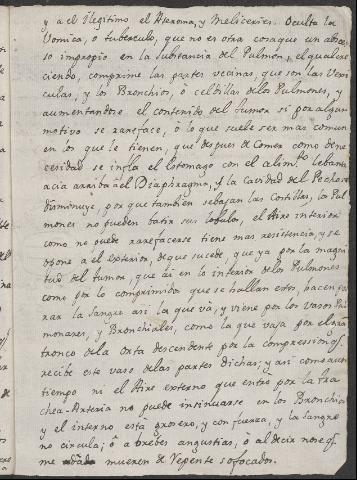 y a el Ilegitimo el Aterona, y Meliceries. Oculta la
Vomica, o tuberculo, que no es otra cosa que un absce-
so impropio en la Substancia del Pulmon, el qual cre-
ciendo, comprime las partes vecinas, que son las Vesi-
culas, y los Bronchios, ô celtillas de los Pulmones, y
aumentandose el contenido del tumor si por algun
motivo se rareface, ô lo que suele ser mas comun
en los que le tienen, que despues de Comer como de ne-
cesidad se infla el Estomago con el alimto. lebanta
acia arriba â el Diaphragma, y la Cavidad del Pecho se
disminuye, por que tambien se bajan las Costillas, los Pul-
mones no pueden batir sus lobulos, el Aire interior
como no puede rarefacerse tiene mas resistencia, y se
opone a el exterior, de que sucede, que ya por la magni-
tud del tumor, que âi en lo interior de los Pulmones
como por lo comprimido que se hallan estos, hacen pa-
rar la sangre asi la que vâ, y viene por los Vasos Pul-
monares, y Bronchiales, como la que vaja por el gran
tronco de la Orta descendente por la compression q̃.
recibe este vaso de las partes dichas; y asi como a un
tiempo ni el Aire externo que entre por la tra-
chea-Arteria no puede insinuarse en los Bronchios
y el interno estâ grosero, y con fuerza, y la sangre
no circula; ô a brebes angustias, ô al decir no se q̃.
me dâ mueren de repente sofocados.